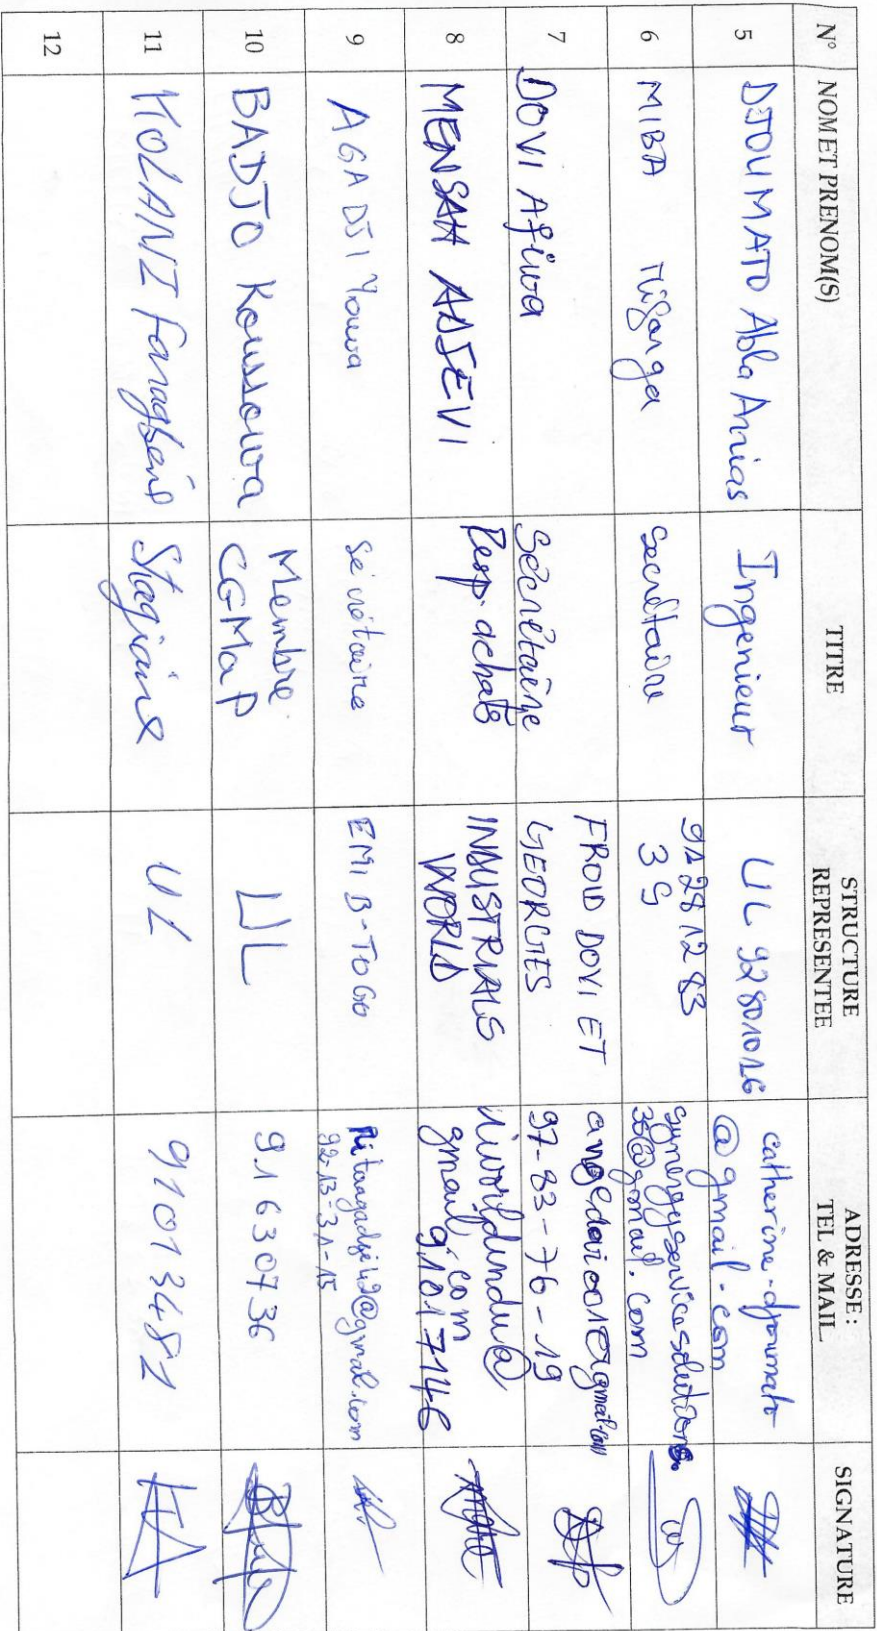 N° NOM ET PRENOM(S) TITRE STRUCTURE REPRESENTEE ADRESSE : TEL & MAIL SIGNATURE
5 DJOUMATO Abla Ingenieur UL 92801026 catherine-djoumato
@gmail.com
6 MIBA Secretaire 91281283
3S synergyservicesolutions
3s@gmail.com
7 DOVI Afiwa Sécrétaire FROID DOVI ET
GEORGES
97-83-76-19
8 MENSAH ADJEVI Resp. achats INDUSTRIALS
WORLD
gmail.com
91017146
9 AGADJI Yawa Sécrétaire EMI B-TOGO
92-13-31-15
10 BADJO Koussowa Membre
CGMaP UL 91630736
11 KOLANI Stagiaire UL 91013482
12